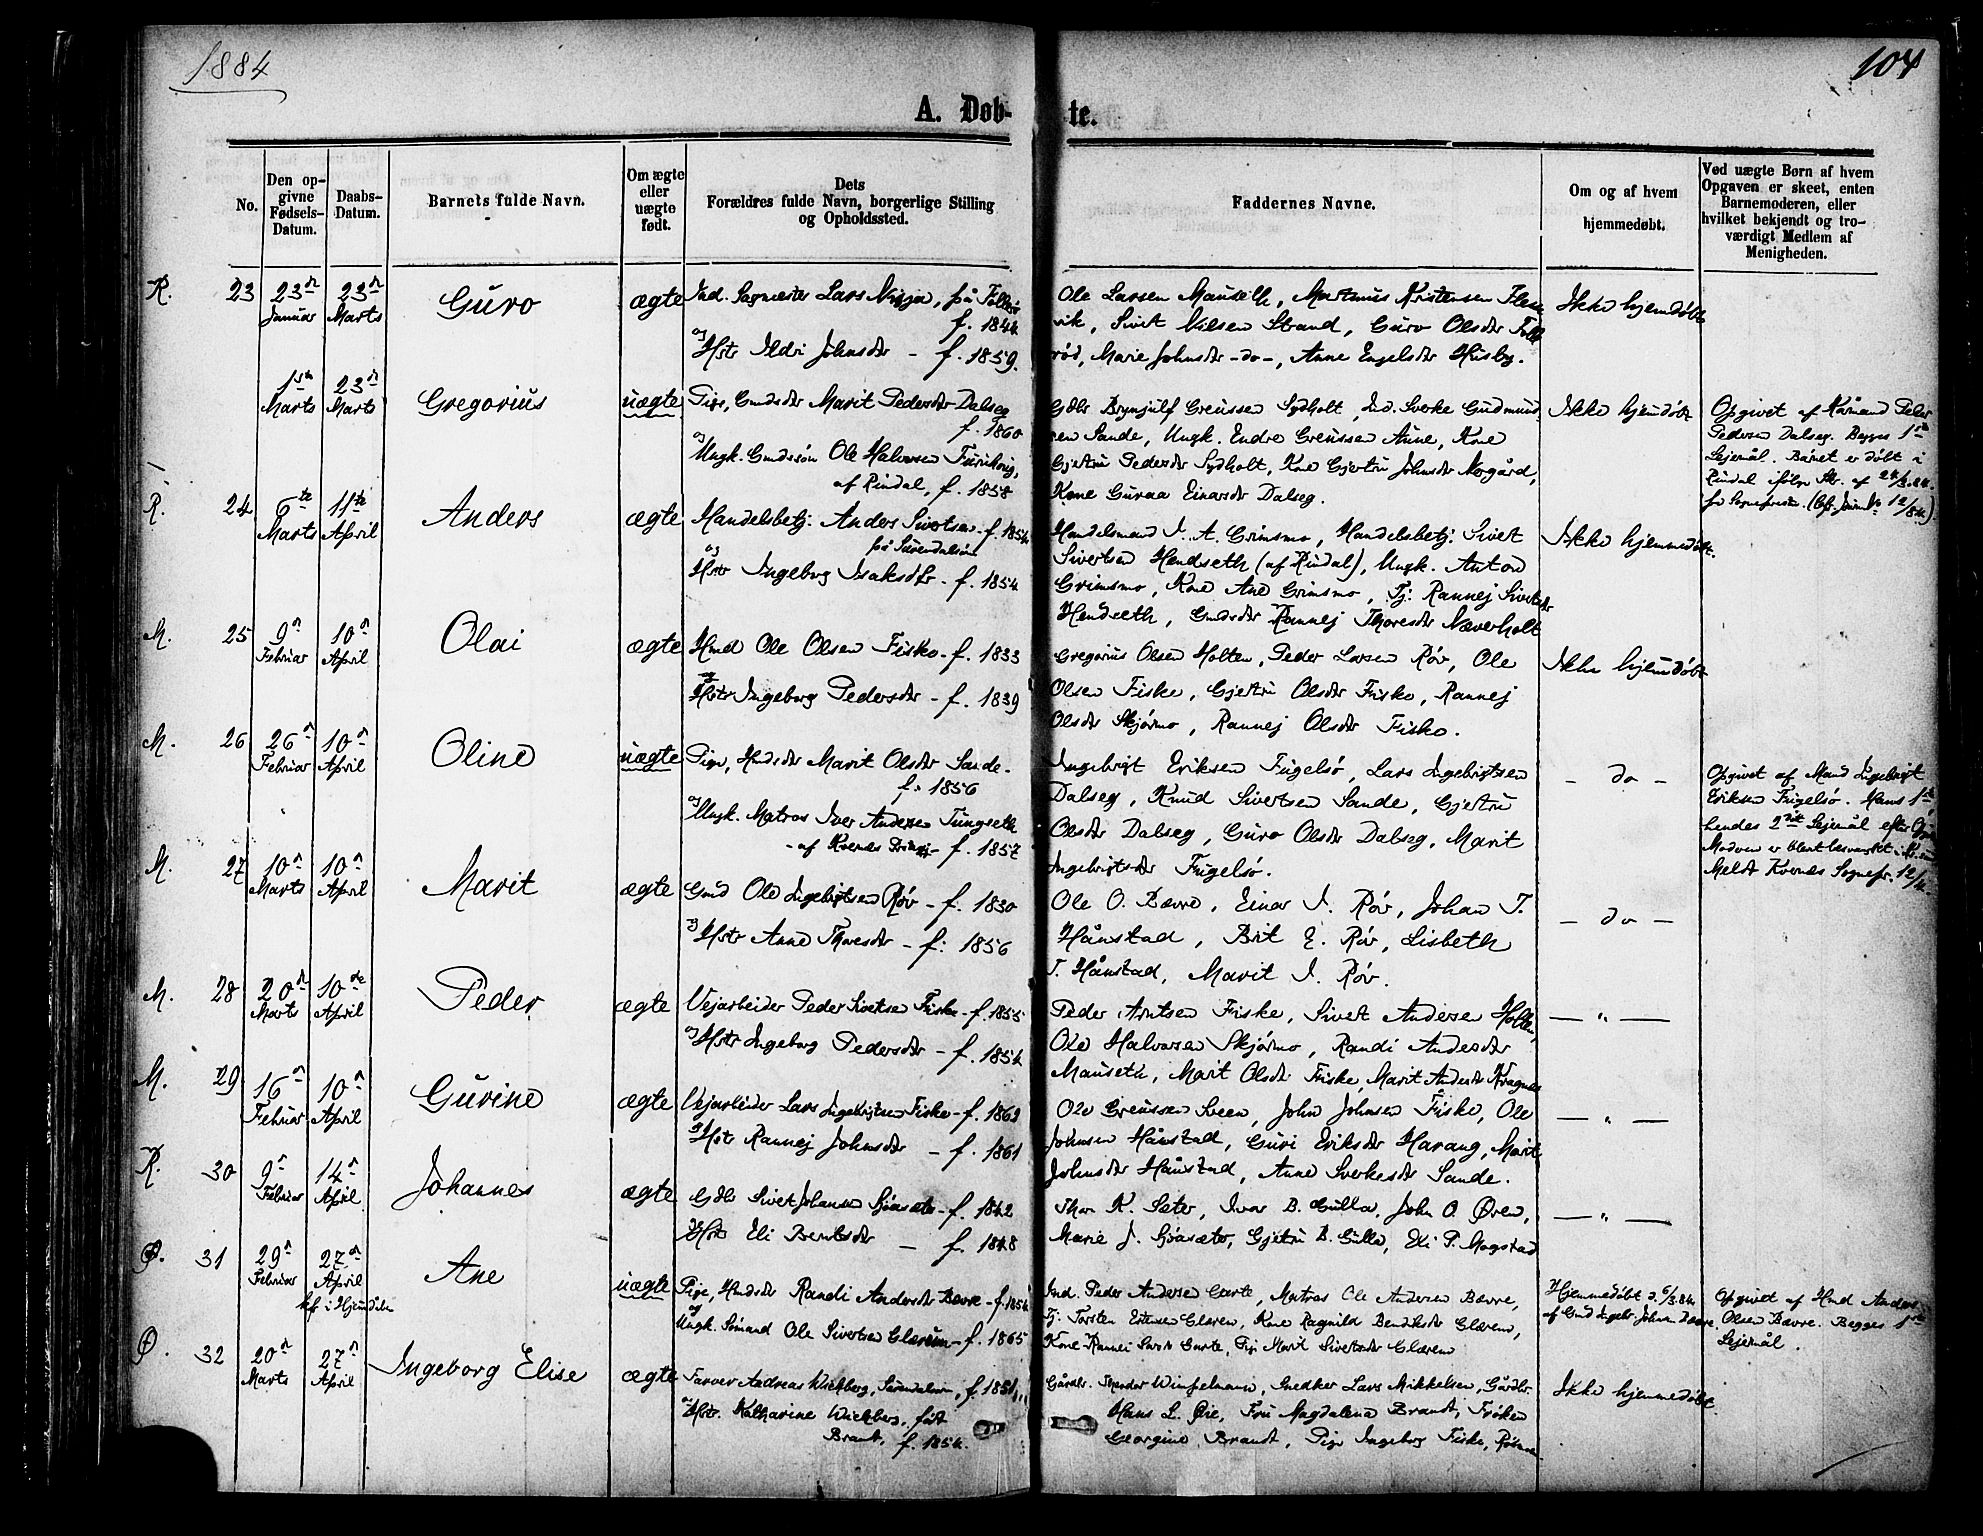 1884
104
A. Døb-
te.
No.
Den op-
givne
Fødsels-
Datum.
Daabs-
Datum.
Barnets fulde Navn.
Om ægte
eller
uægte
født.
Dets
Forældres fulde Navn, borgerlige Stilling
og Opholdssted.
Faddernes Navne.
Om og af hvem
hjemmedøbt.
Ved uægte Børn af hvem
Opgaven er skeet, enten
Barnemoderen, eller
hvilket bekjendt og tro-
værdigt Medlem af
Menigheden.
R. 23 23 Januar 23 Marts Guro ægte Ind. Lars
f. 1844
Hstr Ildri Johnsdtr - f. 1859.
Ole Larsen Mauseth, Martinus Kristensen
vik, Sivert Nilsen Strand, Guro Olsdtr
rød, Marie Johnsdtr -do-, Anne Engelsdtr Husby.
Ikke hjemdøbt
1 Marts 23 Marts Gregorius uægte Pige, Gmdsdtr Marit Pedersdtr Dalseg
f. 1860
Ungk. Gmdssøn Ole Halvorsen
af Rindal, f. 1858
Gdbr Brynjulf Greussen Sydholt, Sverke Gudmund
sen Sande, Ungk. Endre Greussen Aune, Kone
Gjertru Pedersdtr Sydholt, Kne Gjertru Johnsdtr Norgård,
Kone Guraa Einarsdtr Dalseg.
Ikke hjemdøbt
Opgivet af Kårmand Peder
Pedersen Dalseg. Begges 1ste
Lejemål. Barnet er døbt i
Rindal ifølge Skr. af 24/3.84.
R. 24 6te Marts 11te April Anders ægte Handelsbetj. Anders Sivertsen - f. 1854
på Surendalsøren
Hstr Ingeborg Isaksdtr - f. 1854
Handelsmand I. A. Grimsmo, Handelsbetj. Sivert
Sivertsen Hendseth (af Rindal), Ungk. Anton
Grimsmo, Kne Ane Grimsmo, Tj. Rannej Sivertsdtr
Hendseth, Gmdsdtr Rannej Thoresdtr Næverholt
Ikke hjemmedøbt.
M. 25 9 Februar 10 April Olai ægte Hmd Ole Olsen Fiske - f. 1833
Hstr Ingeborg Pedersdtr - f. 1839
Gregorius Olsen Holten, Peder Larsen Røv, Ole
Olsen Fiske, Gjertru Olsdtr Fiske, Rannej
Olsdtr Skjørmo, Rannej Olsdtr Fiske.
Ikke hjemdøbt
M. 26 26 Februar 10 April Oline uægte Pige, Hmdsdtr Marit Olsdtr Sande -
f. 1856
Ungk. Matros Iver Andersen Tungseth
- af Kvernes - f. 1857
Ingebrigt Eriksen Fugelsø, Lars Ingebrigtsen
Dalseg, Knud Sivertsen Sande, Gjertru
Olsdtr Dalseg, Guro Olsdtr Dalseg, Marit
Ingebrigtsdtr Fugelsø.
- do -
Opgivet af Mand Ingebrigt
Eriksen Fugelsø. Hans 1ste
hendes 2det Lejemål efter
Meldt Kvernes Sognepr. 12/4.
M. 27 10 Marts 10 April Marit ægte Gmd Ole Ingebrigtsen Røv - f. 1830
Hstr Anne Thoresdtr - f: 1856
Ole O. Bævre, Einar I. Røv, Johan T.
Hånstad, Brit E. Røv, Lisbeth
T. Hånstad, Marit I. Røv.
- do -
M. 28 20 Marts 10de April Peder ægte Vejarbeider Peder Fiske - f. 1855
Hstr Ingeborg Pedersdtr - f. 1854
Peder Arntsen Fiske, Sivert Andersen Holten,
Ole Halvorsen Skjørmo, Randi Andersdtr
Mauseth, Marit Olsdtr Fiske, Marit Andersdtr Kvagnes
— " —
M. 29 16 Februar 10 April Gurine ægte Vejarbeider Lars Ingebrigtsen Fiske - f. 1862
Hstr Rannej Johnsdtr - f. 1861
Ole Greussen Sveen, John Johnsen Fiske, Ole
Johnsen Hånstad, Guri Eriksdtr Harang, Marit
Johnsdtr Hånstad, Anne Sverkesdtr Sande.
— " —
R. 30 9 Februar 14 April Johannes ægte Gdbr Sivert Johansen Sjøasæter - f. 1842
Hstr Eli Berntsdtr - f. 1848
Thor K. Seter, Ivar B. Gulla, John O. Øren,
Marie J. Sjøasæter, Gjertru B. Gulla, Eli P. Mogstad
— " —
Ø. 31 29 Februar 27 April Ane uægte Pige, Hmdsdtr Randi Andersdtr Bævre - f. 1854
Ungk. Sømand Ole Sivertsen Glærum - f. 1865
Ind. Peder Andersen Garte, Matros Ole Andersen Bævre,
Tj. Torsten Estensen Glærem, Kone Ragnild Bendiksdtr Glærem,
Kone Rannei Garte, Pige Marit Sivertsdtr Glærem
Hjemmedøbt d. 6/3.84
af Gmd Ingebr. Johnsen Bævre.
Opgivet af Hmd Anders
Olsen Bævre. Begges 1ste
Lejemål.
Ø. 32 20 Marts 27 April Ingeborg Elise ægte Farver Andreas Wickberg, Surendalsøren, f. 1851
Hstr. Katharine Wickberg, født
Brandt, f. 1854.
Gårdbr. Winsjelmann, Snedker Lars Mikkelsen, Gårdbr.
Hans L. Øie, Fru Magdalena Brandt, Frøken
Georgine Brandt, Pige Ingeborg Fiske,
Ikke hjemmedøbt